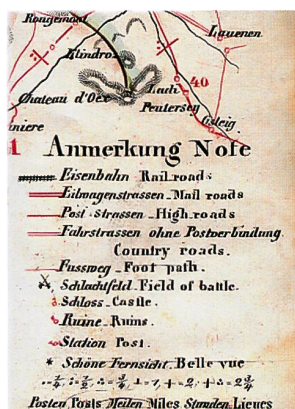 Rougemont
Lauenen
Chateau d'Oex
40
Gsteig
Anmerkung Note
Eisenbahn Railroads
Eilwagenstrassen Mail roads
Post-Strassen High roads
Fahrstrassen ohne Postverbindung
Country roads.
Fussweg Foot path.
Schlachtfeld Field of battle.
Schloss Castle.
Ruine Ruins.
Station Post.
* Schöne Fernsicht Belle vue
Posten Posts Meilen Miles Stunden Lieues